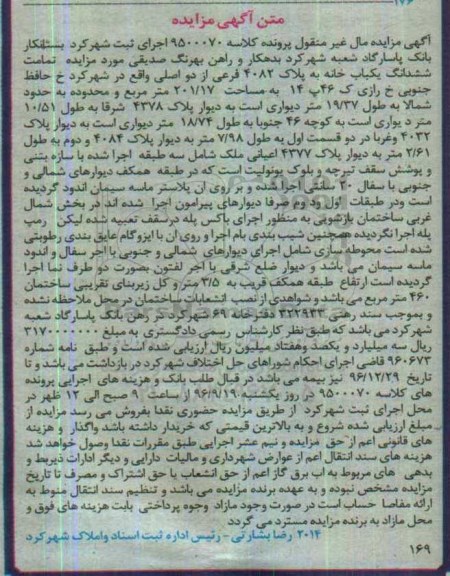 ۱۷۶
متن آگهی مزایده
آگهی مزایده مال غیر منقول پرونده کلاسه ۹۵۰۰۰۷۰ اجرای ثبت شهرکرد بستانکار
بانک پاسارگاد شعبه شهرکرد بدهکار و راهن بهرنگ صدیقی مورد مزایده تمامت
ششدانگ یکباب خانه به پلاک ۴۰۸۲ فرعی از دو اصلی واقع در شهرکرد خ حافظ
جنوبی خ رازی ک ۴۶پ ۱۴ به مساحت ۲۰۱/۱۷ متر مربع و محدوده به حدود
شمالا به طول ۱۹/۳۷ متر دیواری است به دیوار پلاک ۴۳۷۸ شرقا به طول ۱۰/۵۱
متر د یواری است به کوچه ۴۶ جنوبا به طول ۱۸/۷۴ متر دیواری است به دیوار پلاک
۴۰۳۲ وغربا در دو قسمت اول به طول ۷/۹۸ متر به دیوار پلاک ۴۰۸۴ و دوم به طول
۲/۶۱ متر به دیوار پلاک ۴۳۷۷ اعیانی ملک شامل سه طبقه اجرا شده با سازه بتنی
و پوشش سقف تیرچه و بلوک یونولیت است که در طبقه همکف دیوارهای شمالی و
جنوبی با سفال ۲۰ سانتی اجرا شده و بر روی آن پلاستر ماسه سیمان اندود گردیده
است ودر طبقات اول ود وم صرفا دیوارهای پیرامون اجرا شده اند در بخش شمال
غربی ساختمان بازشویی به منظور اجرای باکس پله درسقف تعبیه شده لیکن رمپ
پله اجرا نگردیده همچنین شیب بندی بام اجرا و روی آن با ایزوگام عایق بندی رطوبتی
شده است محوطه سازی شامل اجرای دیوارهای شمالی و جنوبی با آجر سفال و اندود
ماسه سیمان می باشد و دیوار ضلع شرقی با آجر لفتون بصورت دو طرف نما اجرا
گردیده است ارتفاع طبقه همکف قریب به ۳/۵ متر و کل زیربنای تقریبی ساختمان
۴۶۰ متر مربع می باشد و شواهدی از نصب انشعابات ساختمان در محل ملاحظه نشده
و بموجب سند رهنی ۳۲۲۹۳۳ دفترخانه ۶۹ شهرکرد در رهن بانک پاسارگاد شعبه
شهرکرد می باشد که طبق نظر کارشناس رسمی دادگستری به مبلغ ۳۱۷۰۰۰۰۰۰۰
ریال سه میلیارد و یکصد وهفتاد میلیون ریال ارزیابی شده است و طبق نامه شماره
۹۶۰۶۷۳ قاضی اجرای احکام شوراهای حل اختلاف شهرکرد در بازداشت می باشد و تا
تاریخ ۹۶/۱۲/۲۹ نیز بیمه می باشد در قبال طلب بانک و هزینه های اجرایی پرونده
های کلاسه ۹۵۰۰۰۷۰ در روز یکشنبه ۹۶/۹/۱۹ از ساعت ۹ صبح الی ۱۲ ظهر در
محل اجرای ثبت شهرکرد از طریق مزایده حضوری نقدا بفروش می رسد مزایده از
مبلغ ارزیابی شده شروع و به بالاترین قیمتی که خریدار داشته باشد واگذار و هزینه
های قانونی اعم از حق مزایده و نیم عشر اجرایی طبق مقررات نقدا وصول خواهد شد
هزینه های سند انتقال اعم از عوارض شهرداری و مالیات دارایی و دیگر ادارات ذیربط و
بدهی های مربوط به اب برق گاز اعم از حق انشعاب یا حق اشتراک و مصرف تا تاریخ
مزایده مشخص نبوده و به عهده برنده مزایده می باشد و تنظیم سند انتقال منوط به
ارائه مفاصا حساب است در صورت وجود مازاد وجوه پرداختی بابت هزینه های فوق و
محل مازاد به برنده مزایده مسترد می گردد
۲۰۱۴ رضا بشارتی - رئیس اداره ثبت اسناد واملاک شهرکرد
۱۶۹